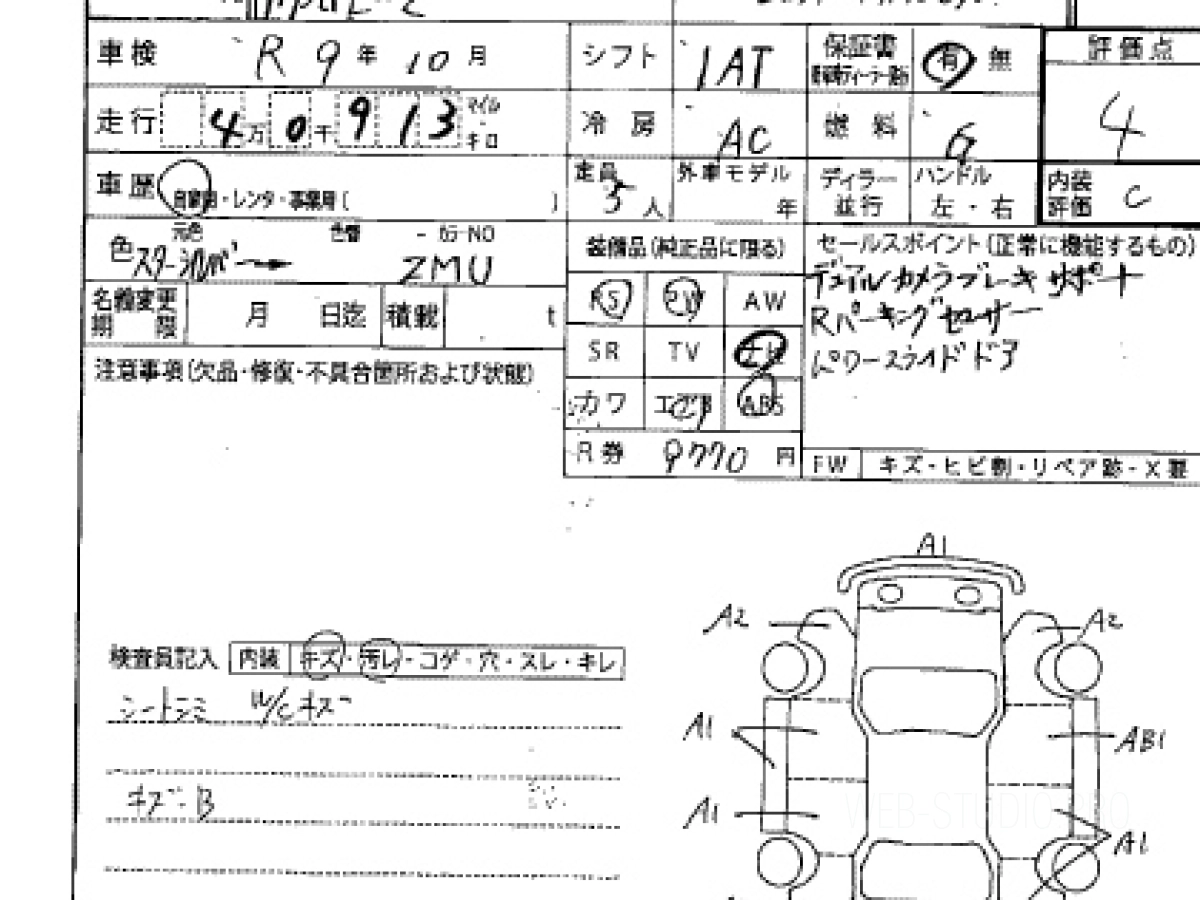 車検 R 9年 10月
シフト 1AT
保証書 有 無
評価点
4
走行 4万 0千 9 1 3 マイル キロ
冷房 AC
燃料 G
車歴 自家用・レンタ・事業用( )
定員 5人
外車モデル 年
ディラー並行
ハンドル 左・右
内装評価 C
色 元色 色替 カラーNO
スターシルバー ZMU
装備品(純正品に限る)
セールスポイント(正常に機能するもの)
デュアルカメラブレーキサポート
Rパーキングセンサー
パワースライドドア
名義変更期限 月 日迄 積載 t
PS PW AW
SR TV ナビ
カワ エアB ABS
R券 9770 円
FW キズ・ヒビ割・リペア跡・X要
注意事項(欠品・修復・不具合箇所および状態)
検査員記入 内装 キズ・汚レ・コゲ・穴・スレ・キレ
シートシミ W/Cキズ
キズ B
A1
A2
A2
A1
AB1
A1
A1
WEB-STUDIO.PRO